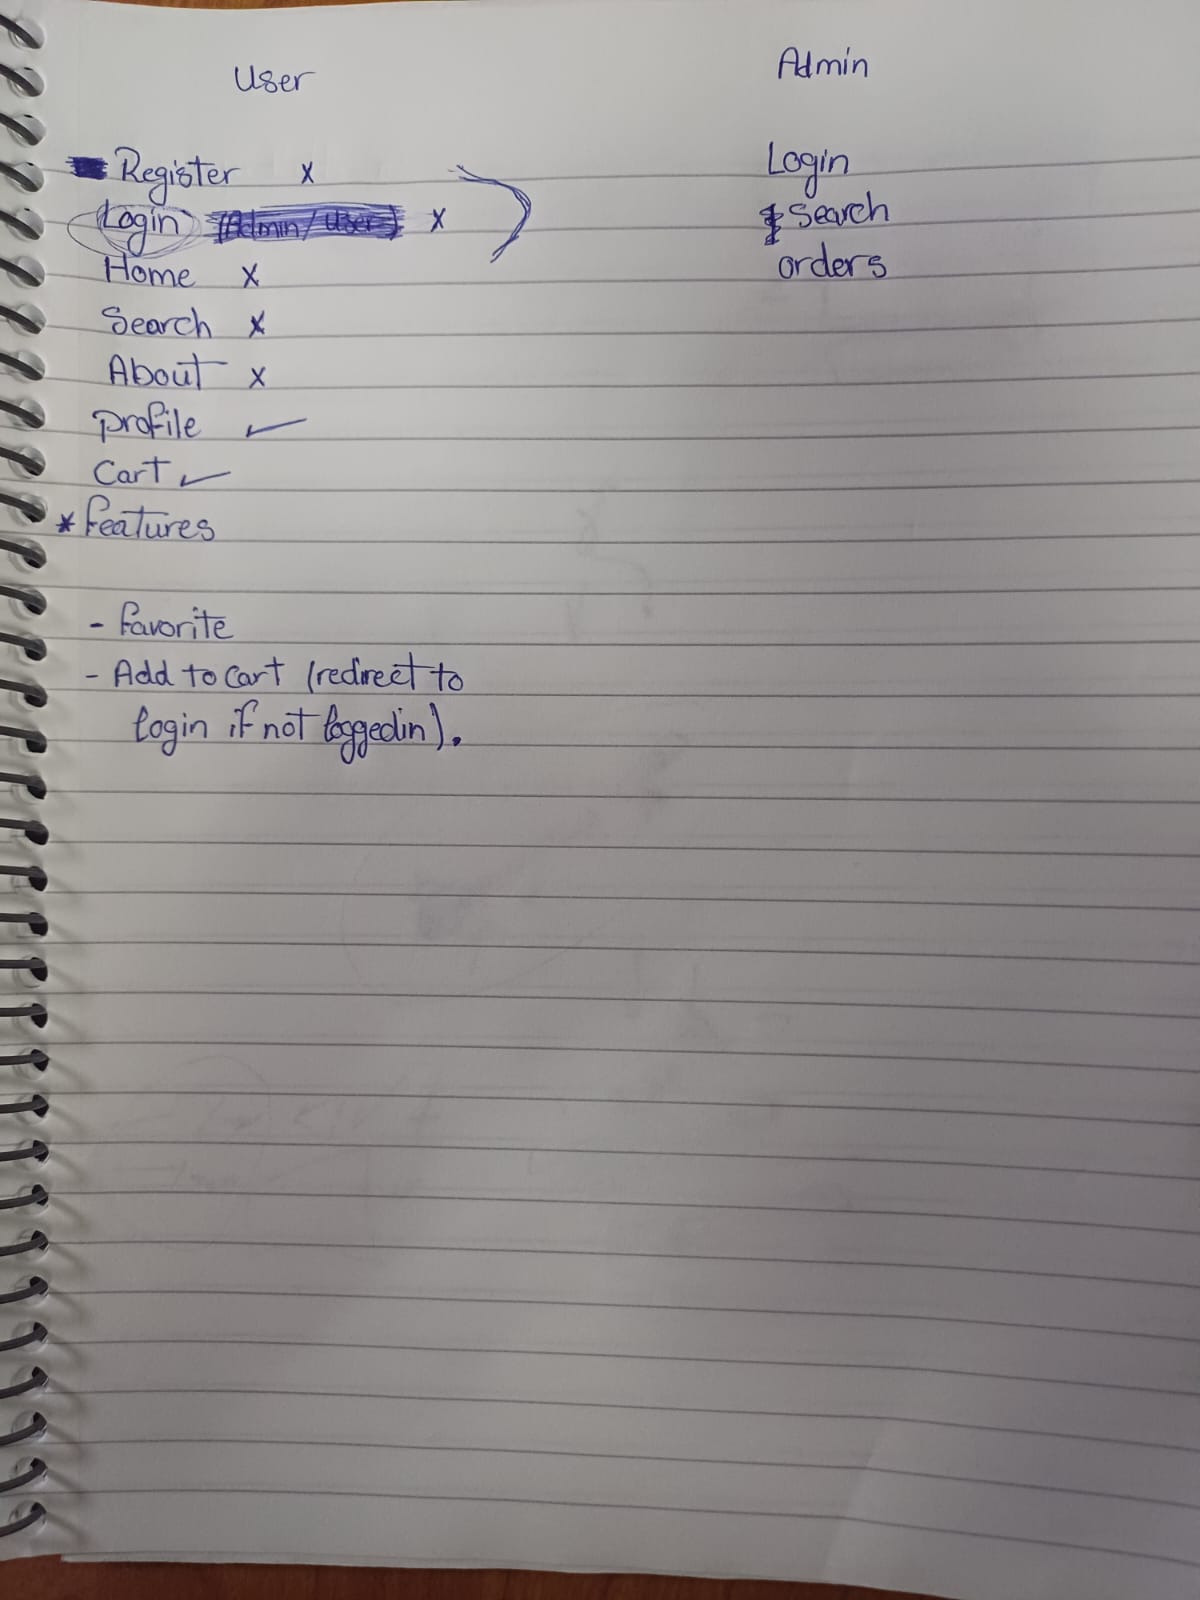 User
Register x
Login (Admin/User) x
Home x
Search x
About x
profile ✓
Cart ✓
* features
- favorite
- Add to cart (redirect to
login if not loggedin).
Admin
Login
Search
orders